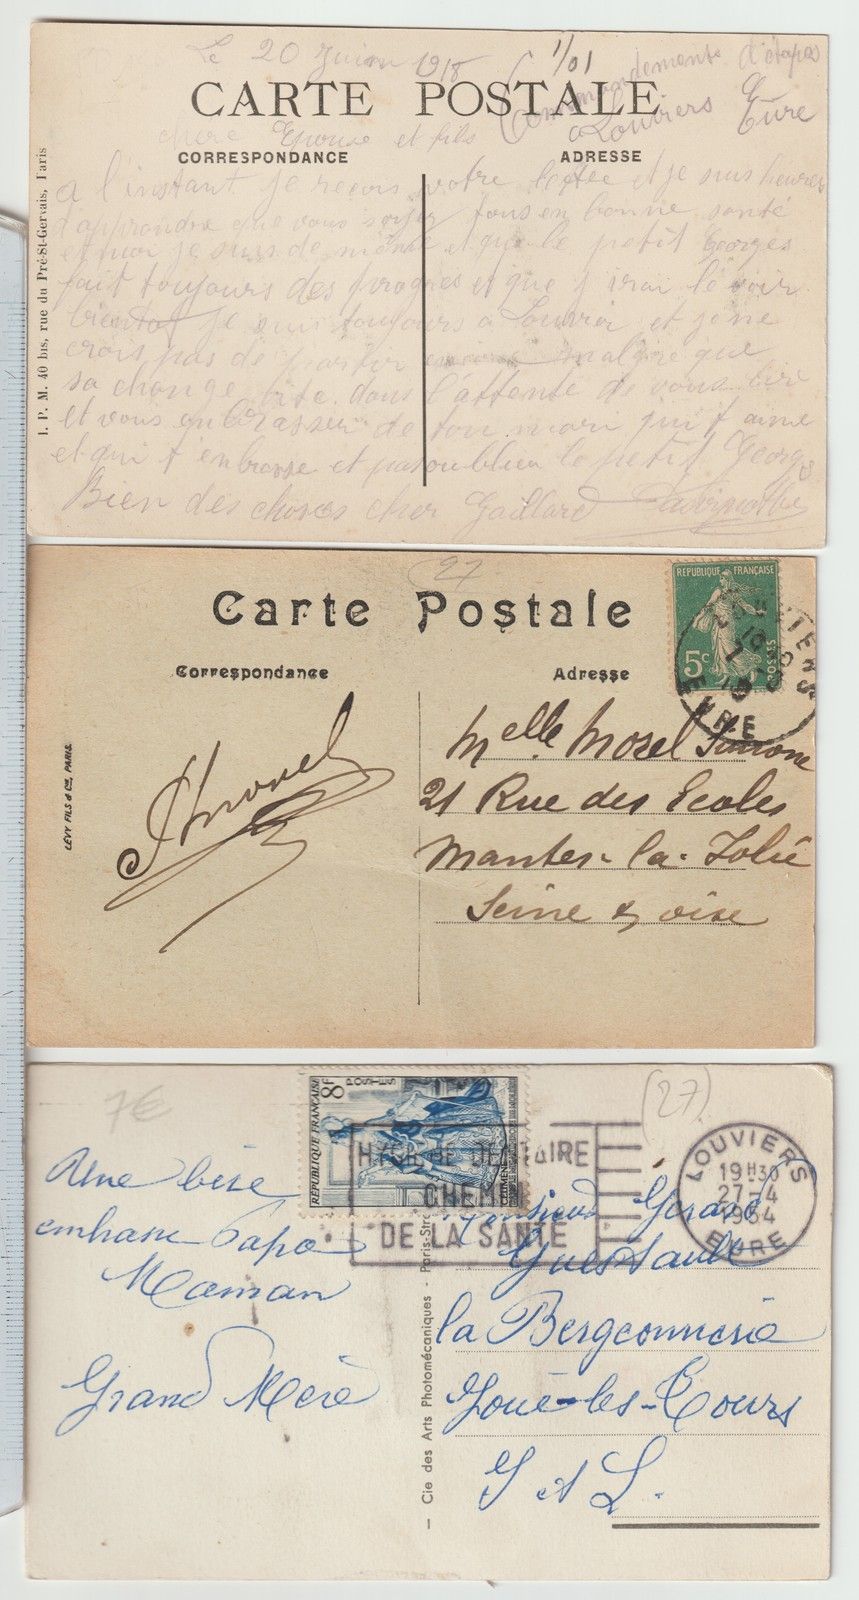 Le 20 Juin 1918
1/01
Commandement d'étapes
a Louviers Eure
CARTE POSTALE
chere Epouse et fils
CORRESPONDANCE
ADRESSE
a l'instant je recois votre lettre et je suis heureu
d'apprendre que vous soyez tous en bonne santé
et moi je suis de même et que le petit Georges
fait toujours des progres et que j irai le voir
bientot je suis toujours a Louvier et je ne
crois pas de partir malgré que
sa change vite dans l'attente de vous lire
et vous enbrasser de ton mari qui t aime
et qui t'enbrasse et pas oublier le petit Georges
Bien des choses cher Gaillard
I. P. M. 40 bis, rue du Pré-St-Gervais, Paris
27
Carte Postale
RÉPUBLIQUE FRANÇAISE
5c
POSTES
LOUVIERS
EURE
Correspondance
Adresse
LÉVY FILS & Cie, PARIS
Melle Morel Simone
21 Rue des Ecoles
Mantes-la-Jolie
Seine & oise
7€
(27)
RÉPUBLIQUE FRANÇAISE
8F
POSTES
HYGIENE DENTAIRE
CHEMIN
DE LA SANTÉ
LOUVIERS
19H30
27-4
1954
EURE
bise
embrasse Papa
Maman
Grand Mère
Monsieur Gérard
la Bergeonnerie
Joué-les-Tours
I et L.
— Cie des Arts Photomécaniques - Paris-Str